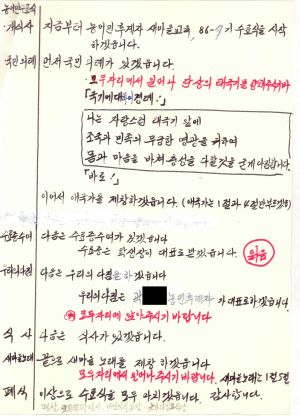 개식사 지금부터 농어민후계자 새마을교육, 86-9기 수료식을 시작
하겠습니다.
국민의례 먼저 국민의례가 있겠습니다.
모두자리에서 일어나 단상의 태극기를 향해주십시요
「국기에대하여 경례.」
나는 자랑스런 태극기 앞에
조국과 민족의 무궁한 영광을 위하여
몸과 마음을 바쳐 충성을 다할것을 굳게 다짐합니다.
「바로!」
이어서 애국가를 제창하겠습니다. (애국가는 1절과 4절만 부르겠습니다)
수료증수여 다음은 수료증수여가 있겠습니다
수료증은 학생장이 대표로 받겠습니다.
우리의다짐 다음은 우리의 다짐을 하겠습니다
우리의다짐은 농어민후계자가 대표로하겠습니다.
모두자리에 앉아주시기 바랍니다
식사 다음은 식사가 있겠습니다.
새마을노래 끝으로 새마을노래를 제창 하겠습니다
모두자리에서 일어나주시기 바랍니다. 새마을노래는 1절
폐식 이상으로 수료식을 모두 마치겠습니다. 감사합니다.